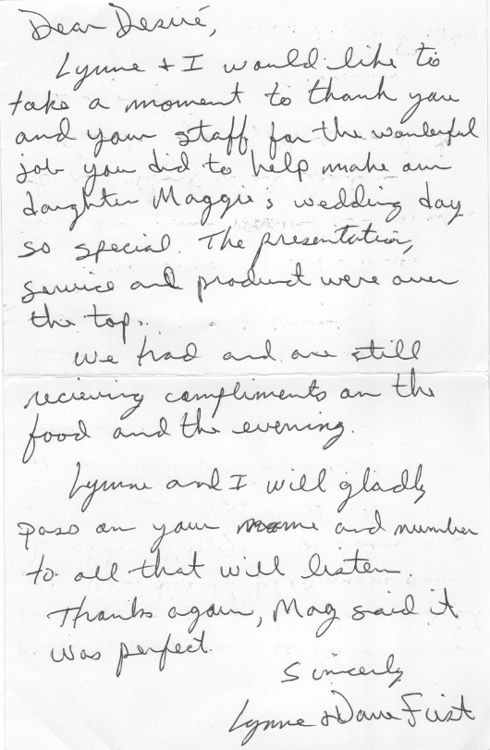 Dear Desiré,
Lynne + I would like to
take a moment to thank you
and your staff for the wonderful
job you did to help make our
daughter Maggie's wedding day
so special. The presentation,
service and product were over
the top.
We had and are still
recieving compliments on the
food and the evening.
Lynne and I will gladly
pass on your name and number
to all that will listen.
Thanks again, Mag said it
was perfect.
Sincerly
Lynne & Dave